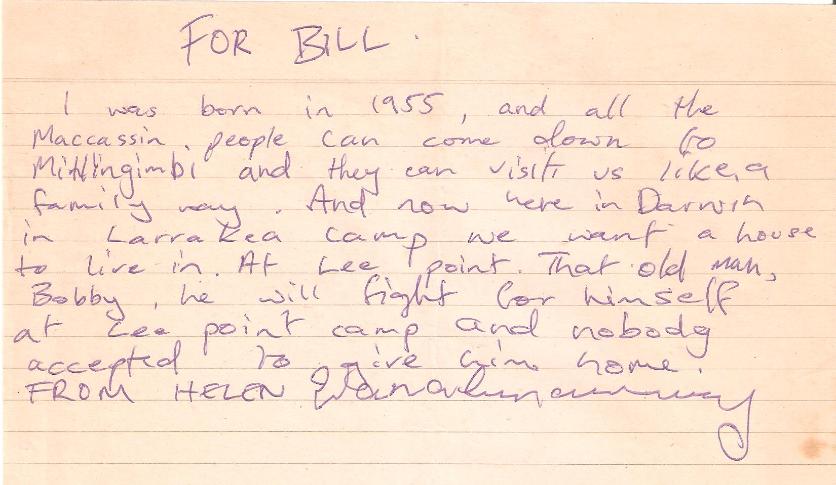 FOR BILL.
I was born in 1955, and all the
Maccassin, people can come down to
Millingimbi and they can visit us like, a
family way. And now here in Darwin
in Larrakea camp we want a house
to live in. At Lee point. That old man,
Bobby, he will fight for himself
at Lee point camp and nobody
accepted to give him home.
FROM HELEN